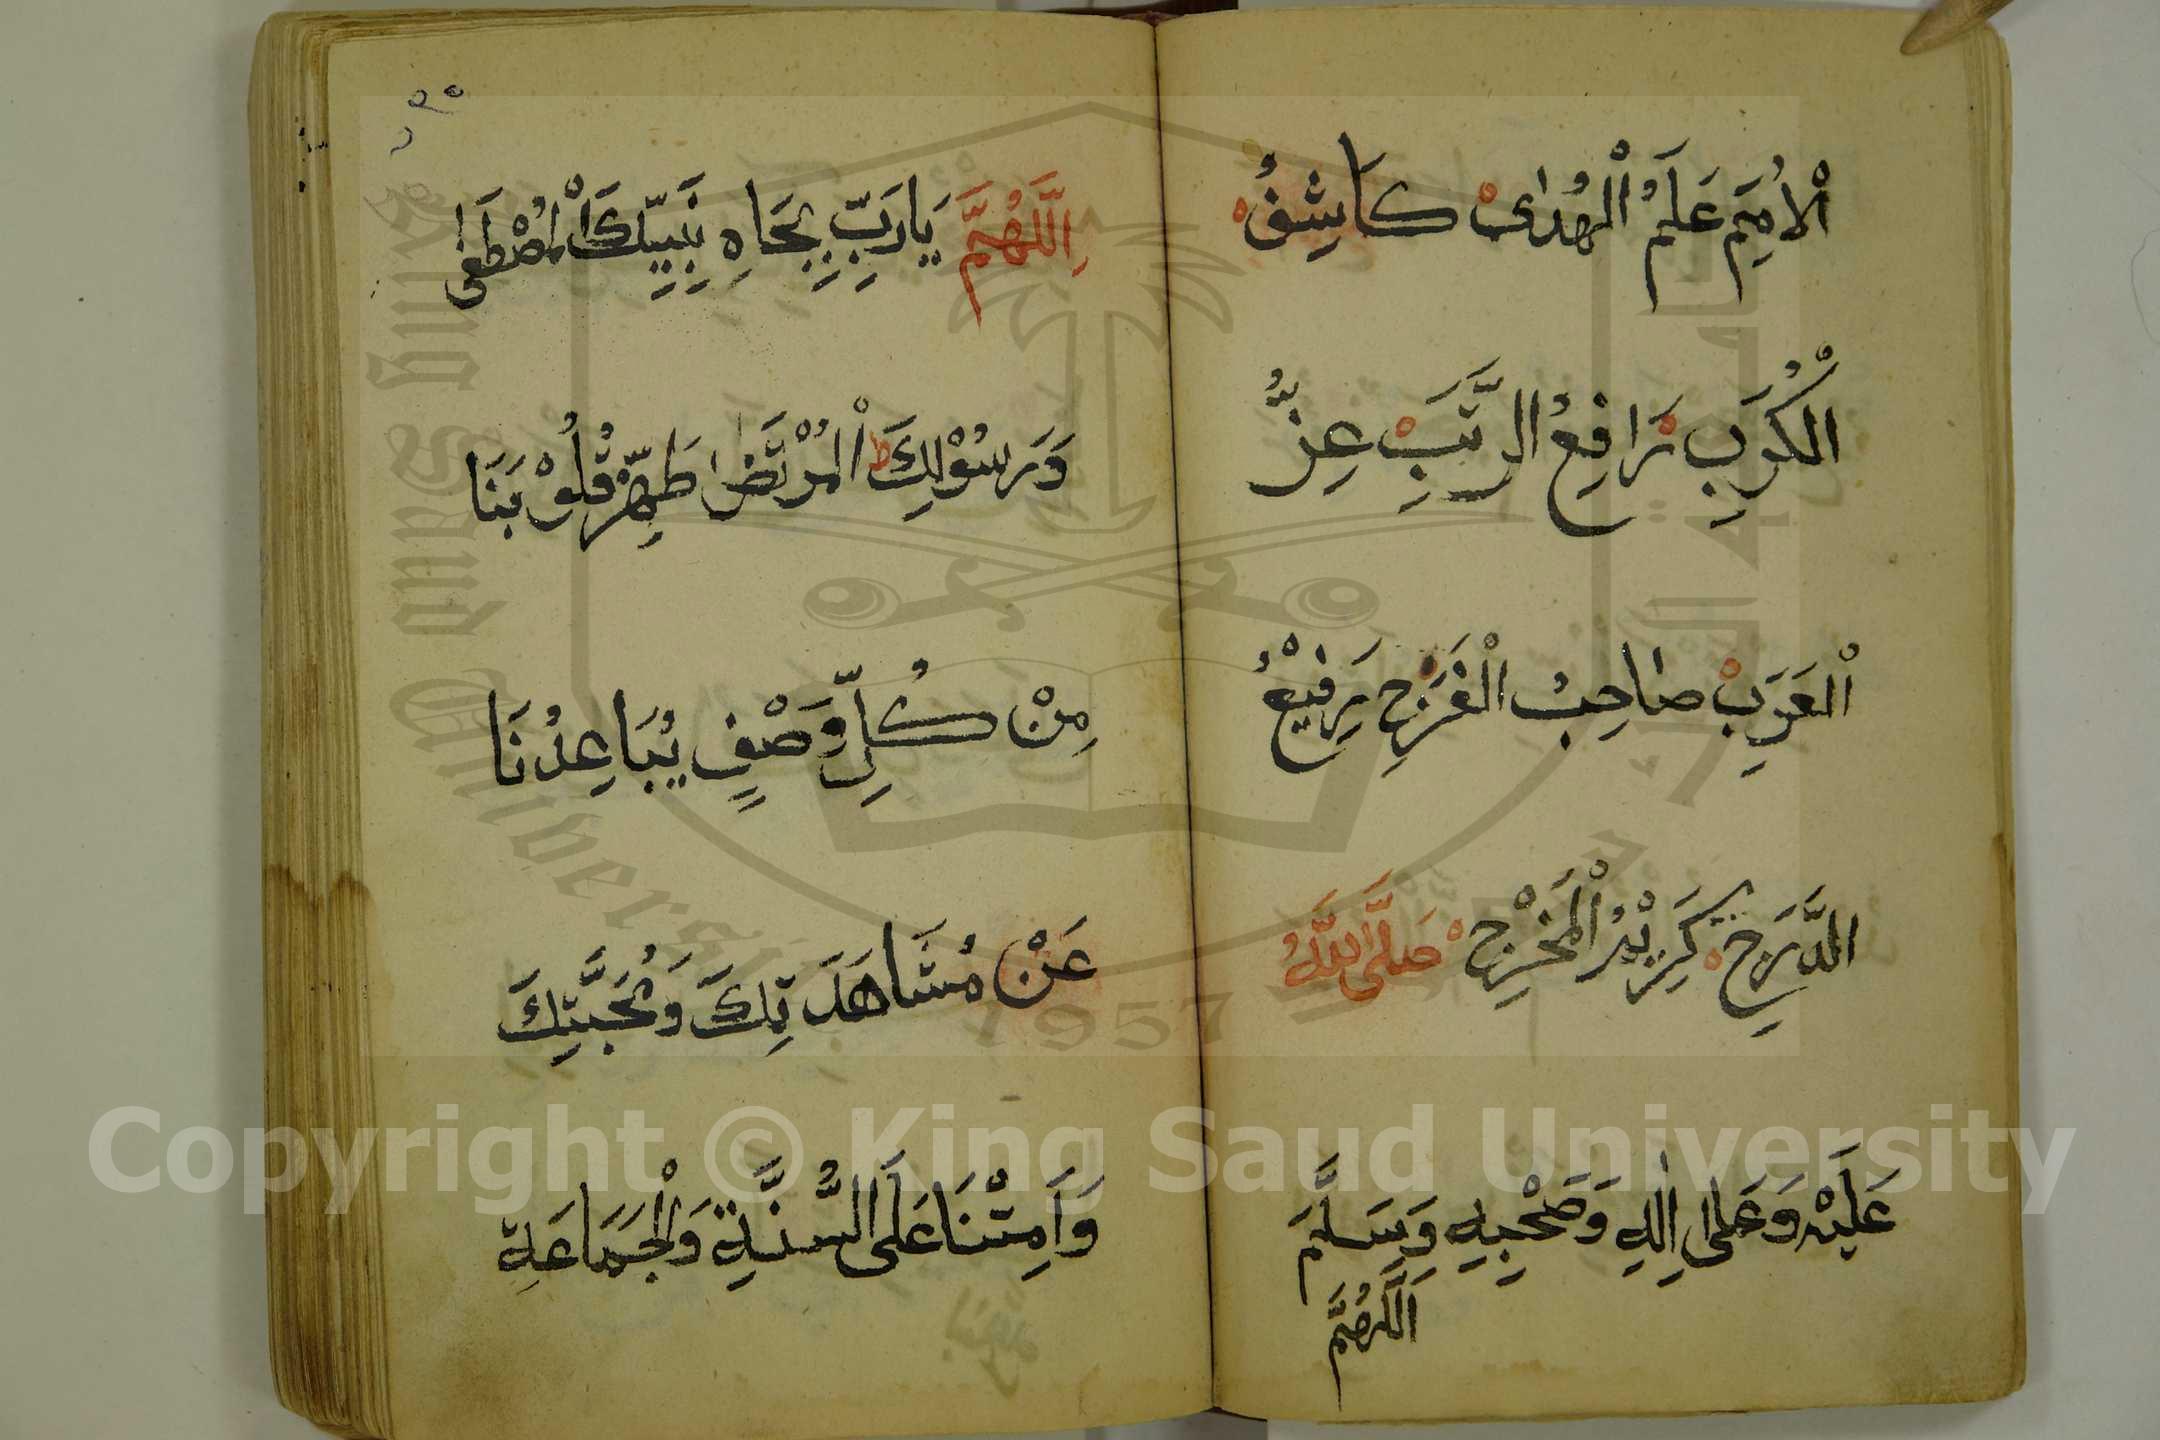 الْأُمَمِ عَلَمُ الْهُدٰى كَاشِفُ
الْكُرَبِ رَافِعُ الرُّتَبِ عِزُّ
الْعَرَبِ صَاحِبُ الْفَرَجِ رَفِيْعُ
الدَّرَجِ كَرِيْمُ الْمَخْرَجِ صَلَّى اللَّهُ
عَلَيْهِ وَعَلٰى اٰلِهِ وَصَحْبِهِ وَسَلَّمَ
اَللَّهُمَّ
اَللَّهُمَّ يَارَبِّ بِجَاهِ نَبِيِّكَ الْمُصْطَفٰى
وَرَسُوْلِكَ الْمُرْتَضٰا طَهِّرْ قُلُوْبَنَا
مِنْ كُلِّ وَصْفٍ يُبَاعِدُنَا
عَنْ مُشَاهَدَتِكَ وَمُحَبَّتِكَ
وَاَمِتْنَا عَلَى السُّنَّةِ وَالْجَمَاعَةِ
Copyright © King Saud University
King Saud University
1957